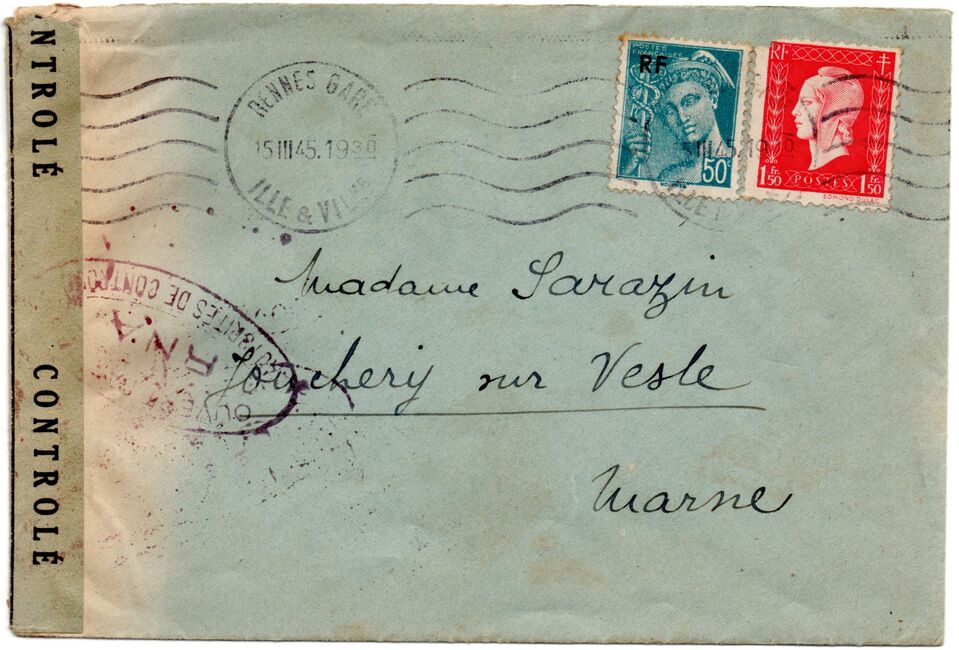 NTROLÉ
CONTROLÉ
RENNES GARE
15 III 45. 1930
ILLE & VIL
POSTES
FRANÇAISES
RF
50c
RF
1 Fr. 50
POSTES
1 Fr. 50
EDMOND DULAC
5 III 45. 19 30
ILLE
Madame Sarazin
Jonchery sur Vesle
Marne
OUVERT
RITÉS DE CONTRO